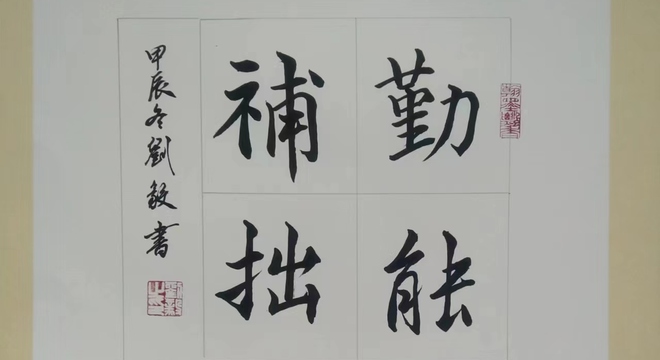 勤能
補拙
甲辰冬劉毅書